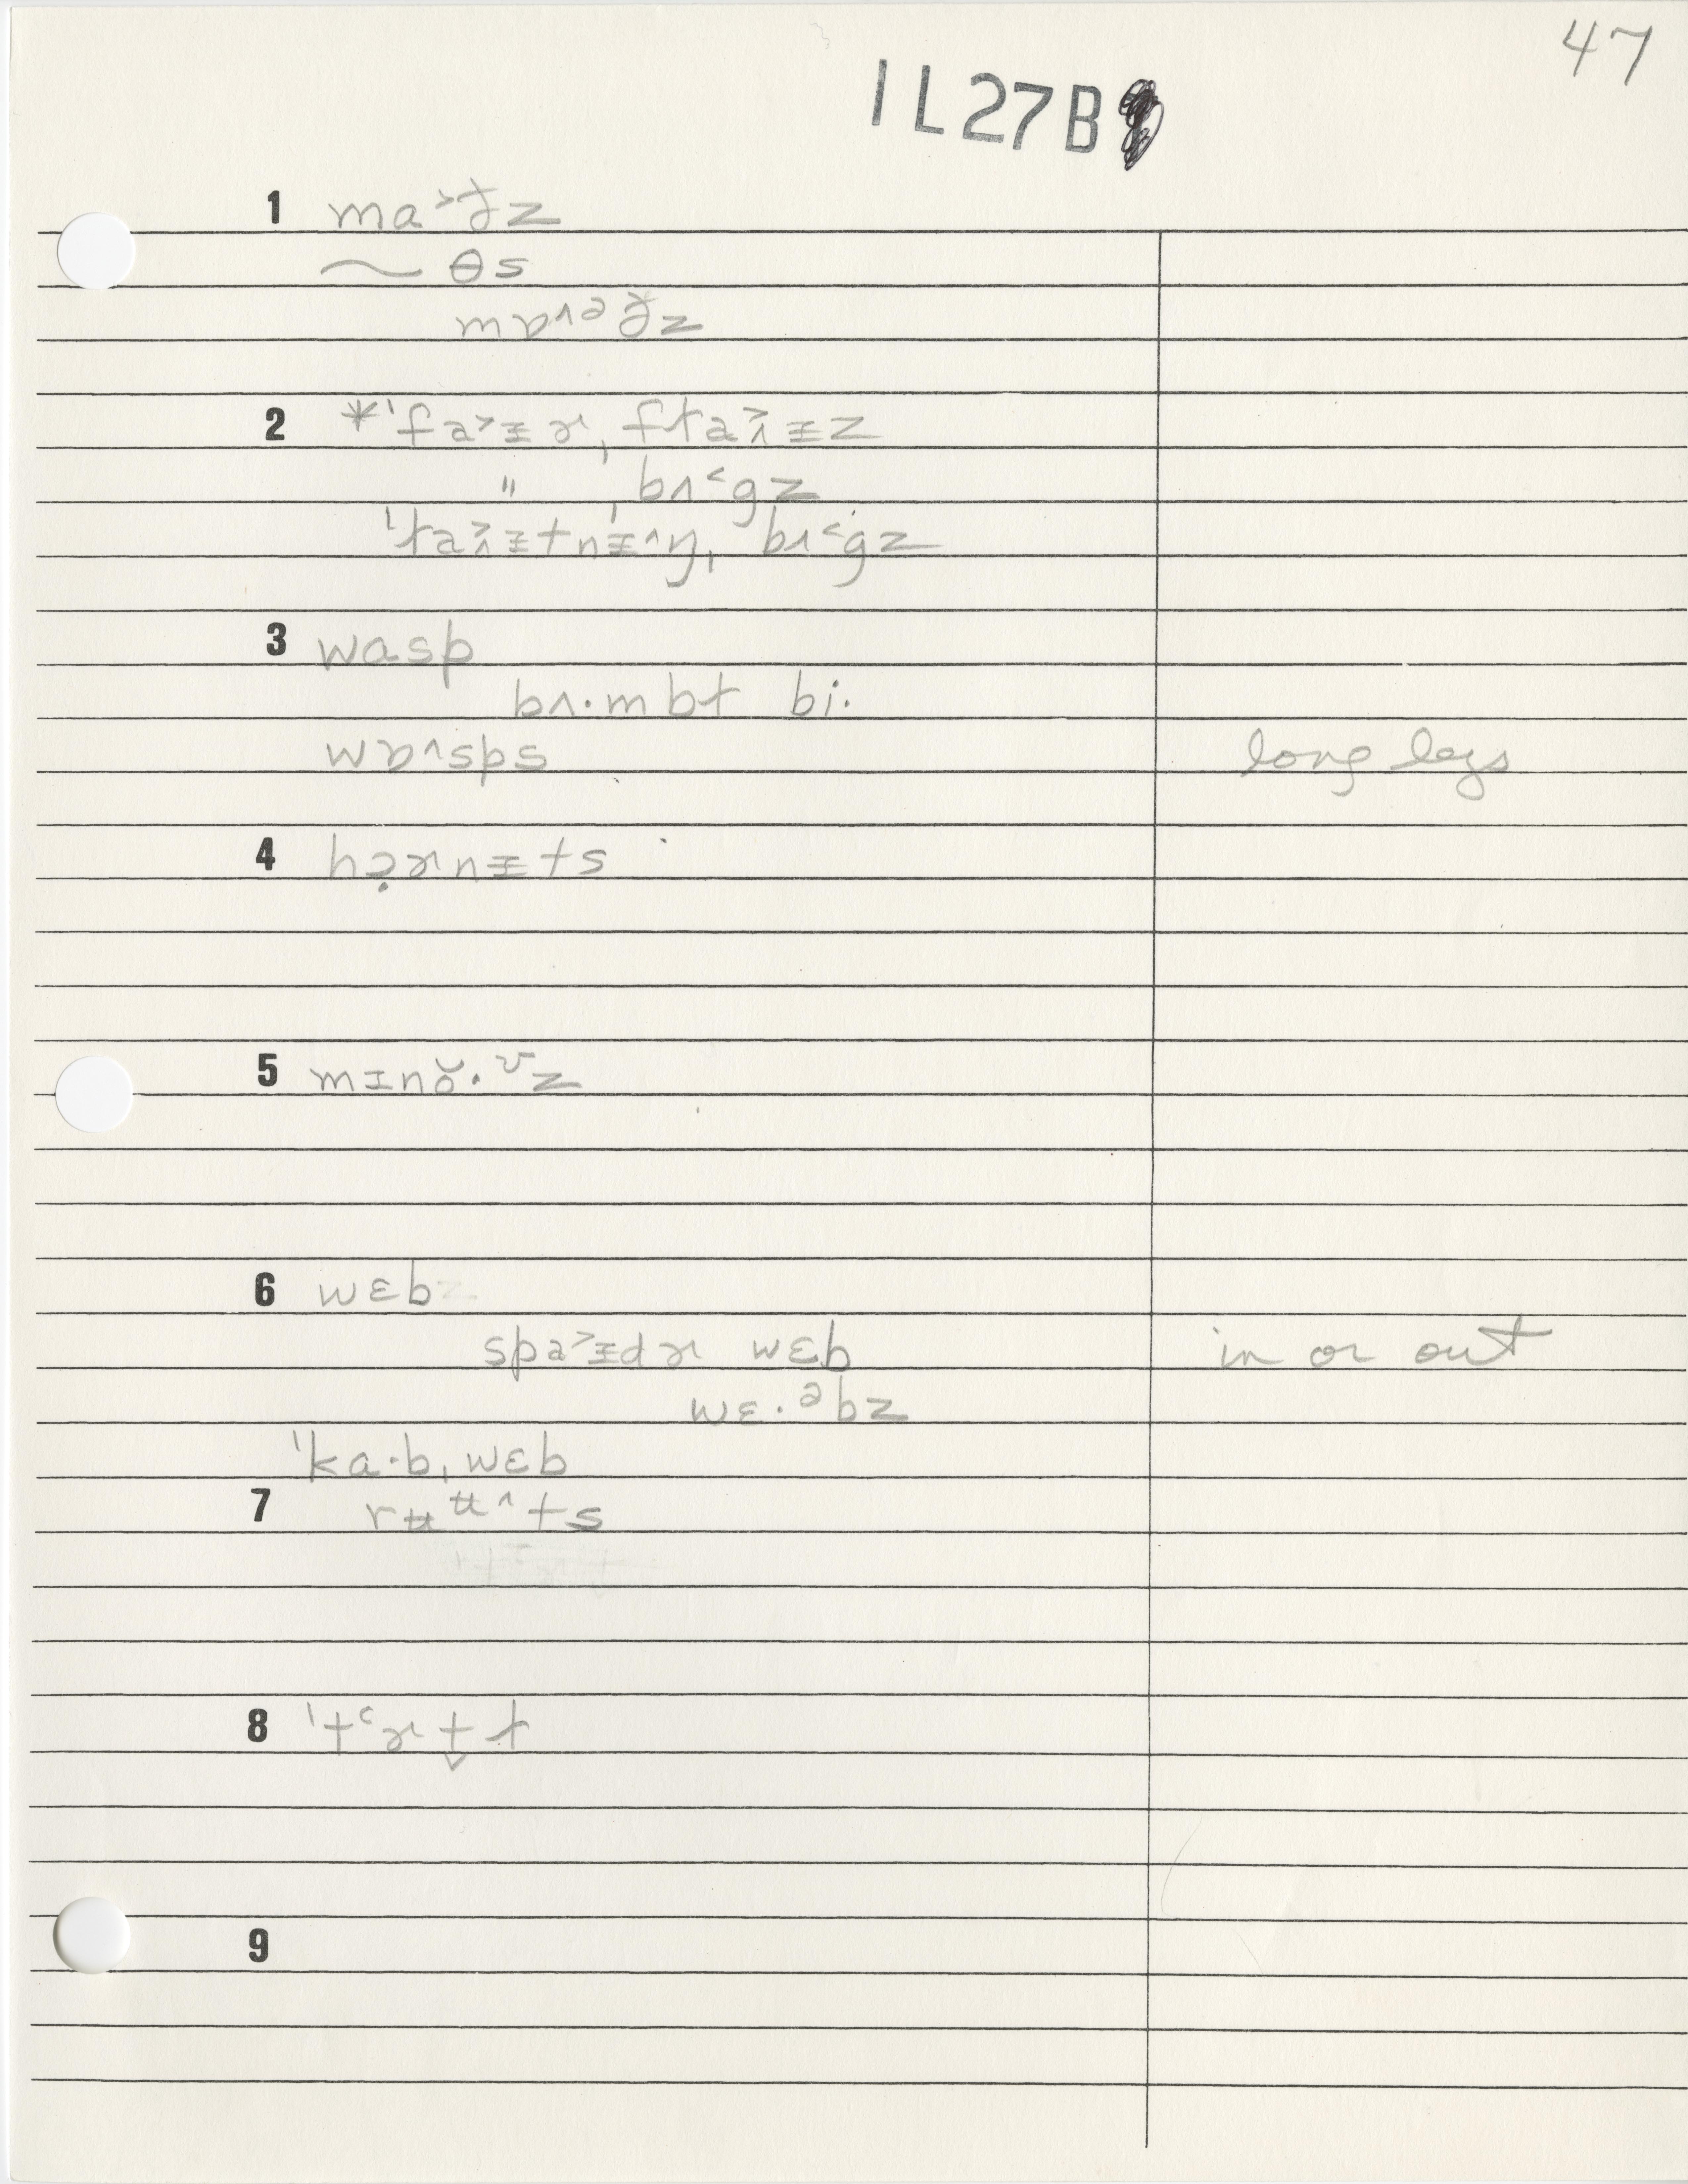 47
1L27B
1 ma˃ð̵z
~ θs
mɒ˄ᵊð̵z
2 *ˈfa˃ᵻɚˌflaᵻ̂z
" ˌbʌ˂gz
ˈlaᵻ̂tnᵻ˄ŋˌ bʌ˂gz
3 wasp
bʌ·mbɫ bi·
wɒ˄sps long legs
4 hɔ̣ɚnᵻts
5 mɪnŏ·ᶷz
6 wɛb
spa˃ᵻdɚ wɛb in or out
wɛ·ᵊbz
ˈka·bˌwɛb
7 rʉᶶ˄ts
8 ˈtɔɚt̬ɫ
9